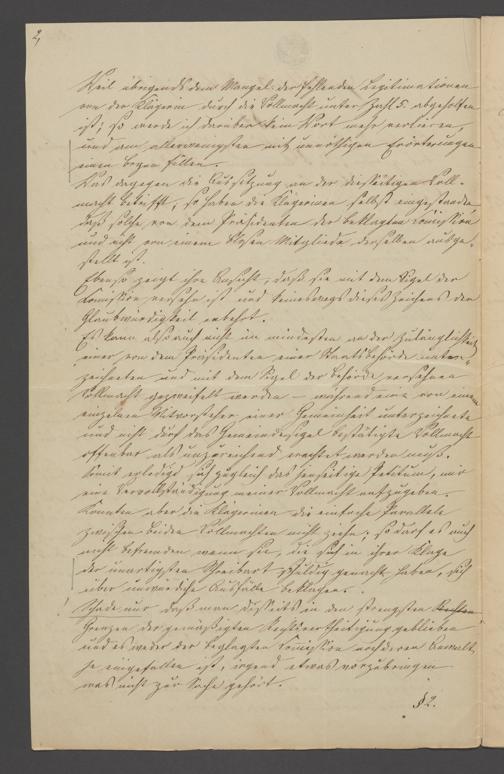 2,
Weil übrigens dem Mangel der fehlenden Legitimationen
von der Klägerin durch die Vollmacht unter Zahl 5. abgeholfen
ist; so werde ich darüber kein Wort mehr verlieren,
und am allerwenigsten mit unnöthigen Erörterungen
einen Bogen füllen.
Was dagegen die Aussetzung an der diesseitigen Voll-
macht betrifft, so haben die Klägerinen selbst eingestanden
daß solche von dem Präsidenten der beklagten Comission
und nicht von einem bloßen Mitgliede derselben ausge-
stellt ist.
Ebenso zeigt ihre Ansicht, daß sie mit dem Sigel der
Comission versehen ist und keineswegs dieses Zeichens der
Glaubwürdigkeit entbehrt.
Es kann also auch nicht im mindesten an der Zulänglichkeit
einer von dem Präsidenten einer Staatsbehörde unter-
zeichneten und mit dem Sigel der Behörde versehenen
Vollmacht gezweifelt werden – während eine von einem
einzelnen Mitvorsteher einer Gemeinheit unterzeichnete
und nicht durch das Gemeindesigel bestätigte Vollmacht
offenbar als unzureichend erachtet werden muß.
Somit erledigt sich zugleich das jenseitige Petitum, mir
eine Vervollständigung meiner Vollmacht aufzugeben.
Konnten aber die Klägerinen die einfache Parallele
zwischen beiden Vollmachten nicht ziehen; so darf es auch
nicht befremden wenn sie, die sich in ihrer Klage
der unartigsten Schreibart schuldig gemacht haben, sich
über unwürdige Ausfälle beklagen.
Schade nur daß man diesseits in den strengsten
Grenzen der gemäßigten Rechtsvertheidigung geblieben
und es weder der beklagten Comission noch deren Anwalt
je eingefallen ist, irgend etwas vorzubringen
was nicht zur Sache gehört.
§ 2.